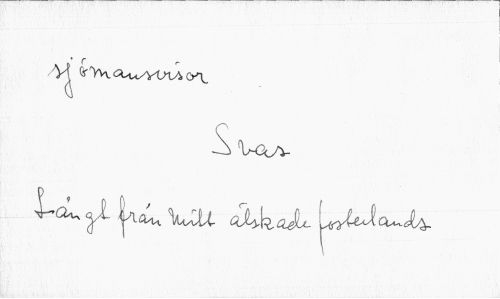 sjömansvisor
Svas
Långt från mitt älskade fosterlands